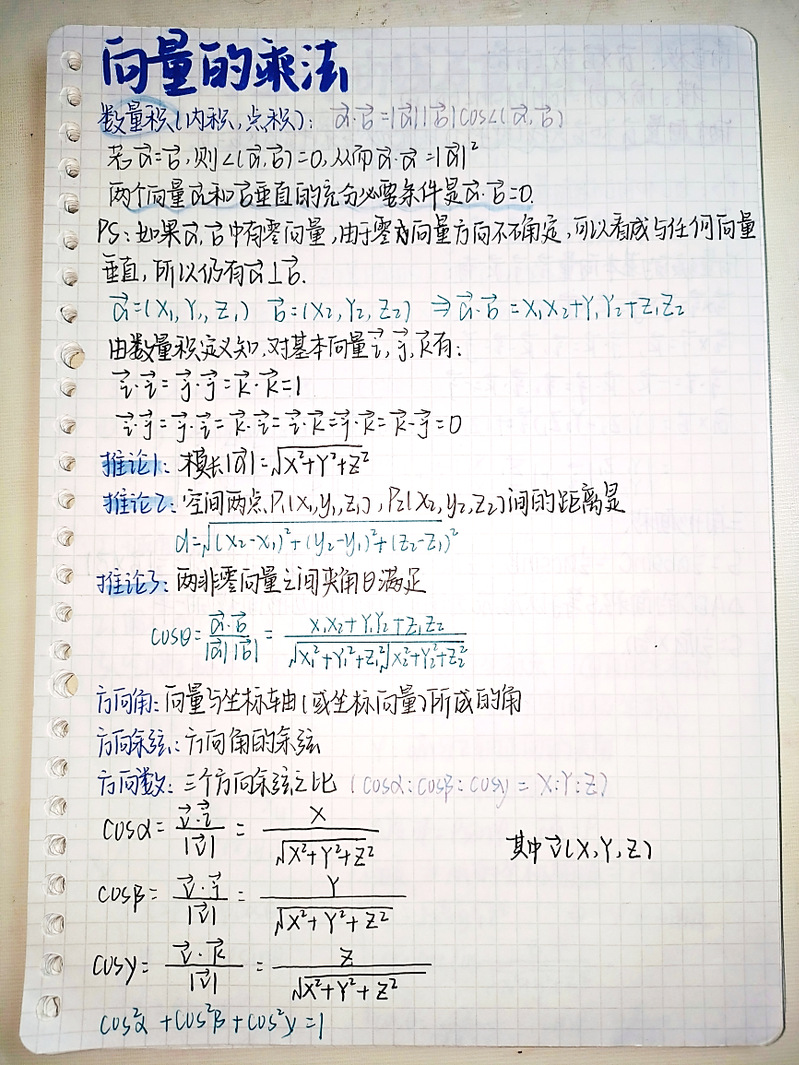 向量的乘法
数量积(内积,点积): a⃗·b⃗=|a⃗||b⃗|cos∠(a⃗,b⃗)
若a⃗=b⃗,则∠(a⃗,b⃗)=0,从而a⃗·a⃗=|a⃗|²
两个向量a⃗和b⃗垂直的充分必要条件是a⃗·b⃗=0.
PS:如果a⃗,b⃗中有零向量,由于零向量方向不确定,可以看成与任何向量
垂直,所以仍有a⃗⊥b⃗.
a⃗=(X₁,Y₁,Z₁) b⃗=(X₂,Y₂,Z₂) ⇒a⃗·b⃗=X₁X₂+Y₁Y₂+Z₁Z₂
由数量积定义知,对基本向量i⃗,j⃗,k⃗有:
i⃗·i⃗=j⃗·j⃗=k⃗·k⃗=1
i⃗·j⃗=j⃗·i⃗=k⃗·i⃗=i⃗·k⃗=j⃗·k⃗=k⃗·j⃗=0
推论1:模长|a⃗|=√(X²+Y²+Z²)
推论2:空间两点P₁(x₁,y₁,z₁),P₂(x₂,y₂,z₂)间的距离是
d=√((x₂-x₁)²+(y₂-y₁)²+(z₂-z₁)²)
推论3:两非零向量之间夹角θ满足
cosθ=(a⃗·b⃗)/(|a⃗||b⃗|)=(X₁X₂+Y₁Y₂+Z₁Z₂)/(√(X₁²+Y₁²+Z₁²)√(X₂²+Y₂²+Z₂²))
方向角:向量与坐标轴(或坐标向量)所成的角
方向余弦:方向角的余弦
方向数:三个方向余弦之比 (cosα:cosβ:cosγ=X:Y:Z)
cosα=(v⃗·i⃗)/|v⃗|=X/√(X²+Y²+Z²) 其中v⃗(X,Y,Z)
cosβ=(v⃗·j⃗)/|v⃗|=Y/√(X²+Y²+Z²)
cosγ=(v⃗·k⃗)/|v⃗|=Z/√(X²+Y²+Z²)
cos²α+cos²β+cos²γ=1